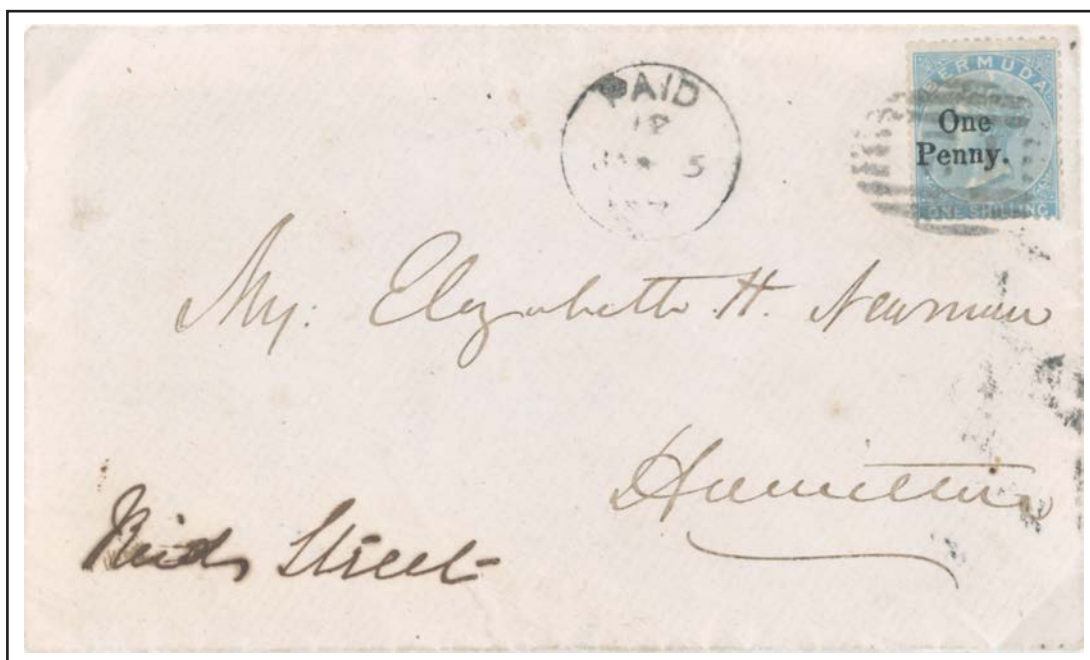 PAID
JA 5
BERMUDA
One
Penny.
ONE SHILLING
Elizabeth H. Newman
Hamilton
Street